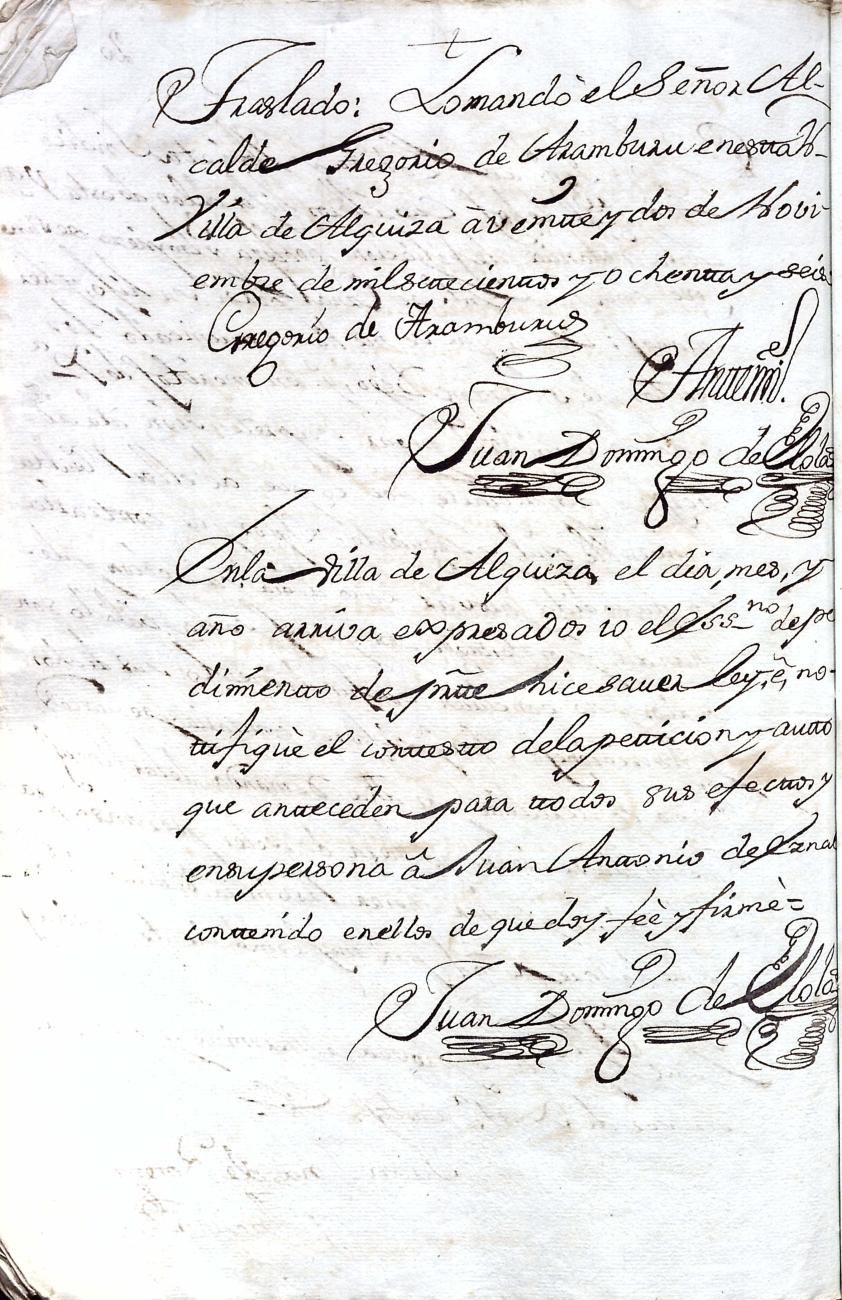 Traslado: Lo mandò el Señor Al-
calde Gregorio de Aramburu en esta
Villa de Alquiza à veinte y dos de Novi-
embre de mil setecientos y ochenta y seis
Gregorio de Aramburu
Antemi.
Juan Domingo de Olola
En la Villa de Alquiza, el dia, mes, y
año arriva expresados io el Ess.no de pe
dimiento de pãrte hice saver ley, è, no-
tifiquè el contesto de la peticion y auto
que anteceden para todos sus efectos y
en su persona à Juan Antonio de
contenido en ellos de que doy feè y firmè=
Juan Domingo de Olola